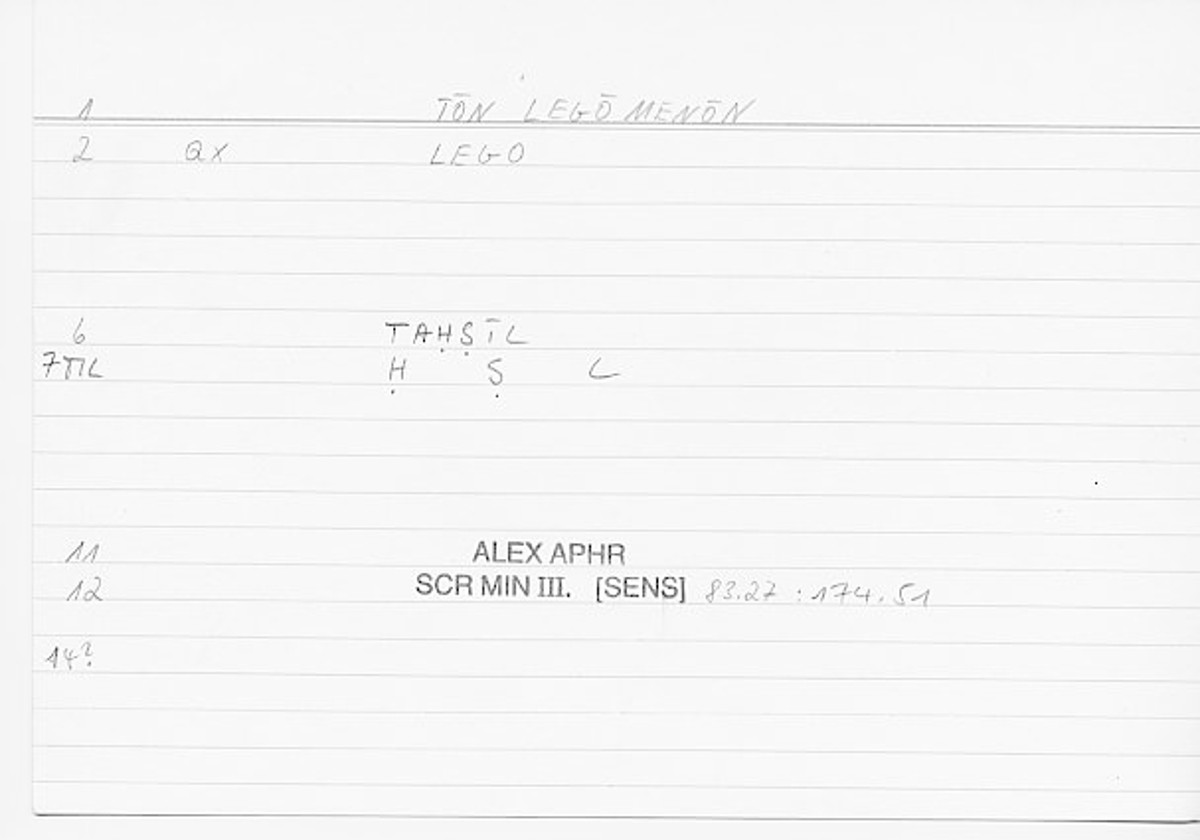 1 TŌN LEGŌMENŌN
2 QX LEGO
6 TAḤṢĪL
7TIL Ḥ Ṣ L
11 ALEX APHR
12 SCR MIN III. [SENS] 83.27 : 174.51
14?